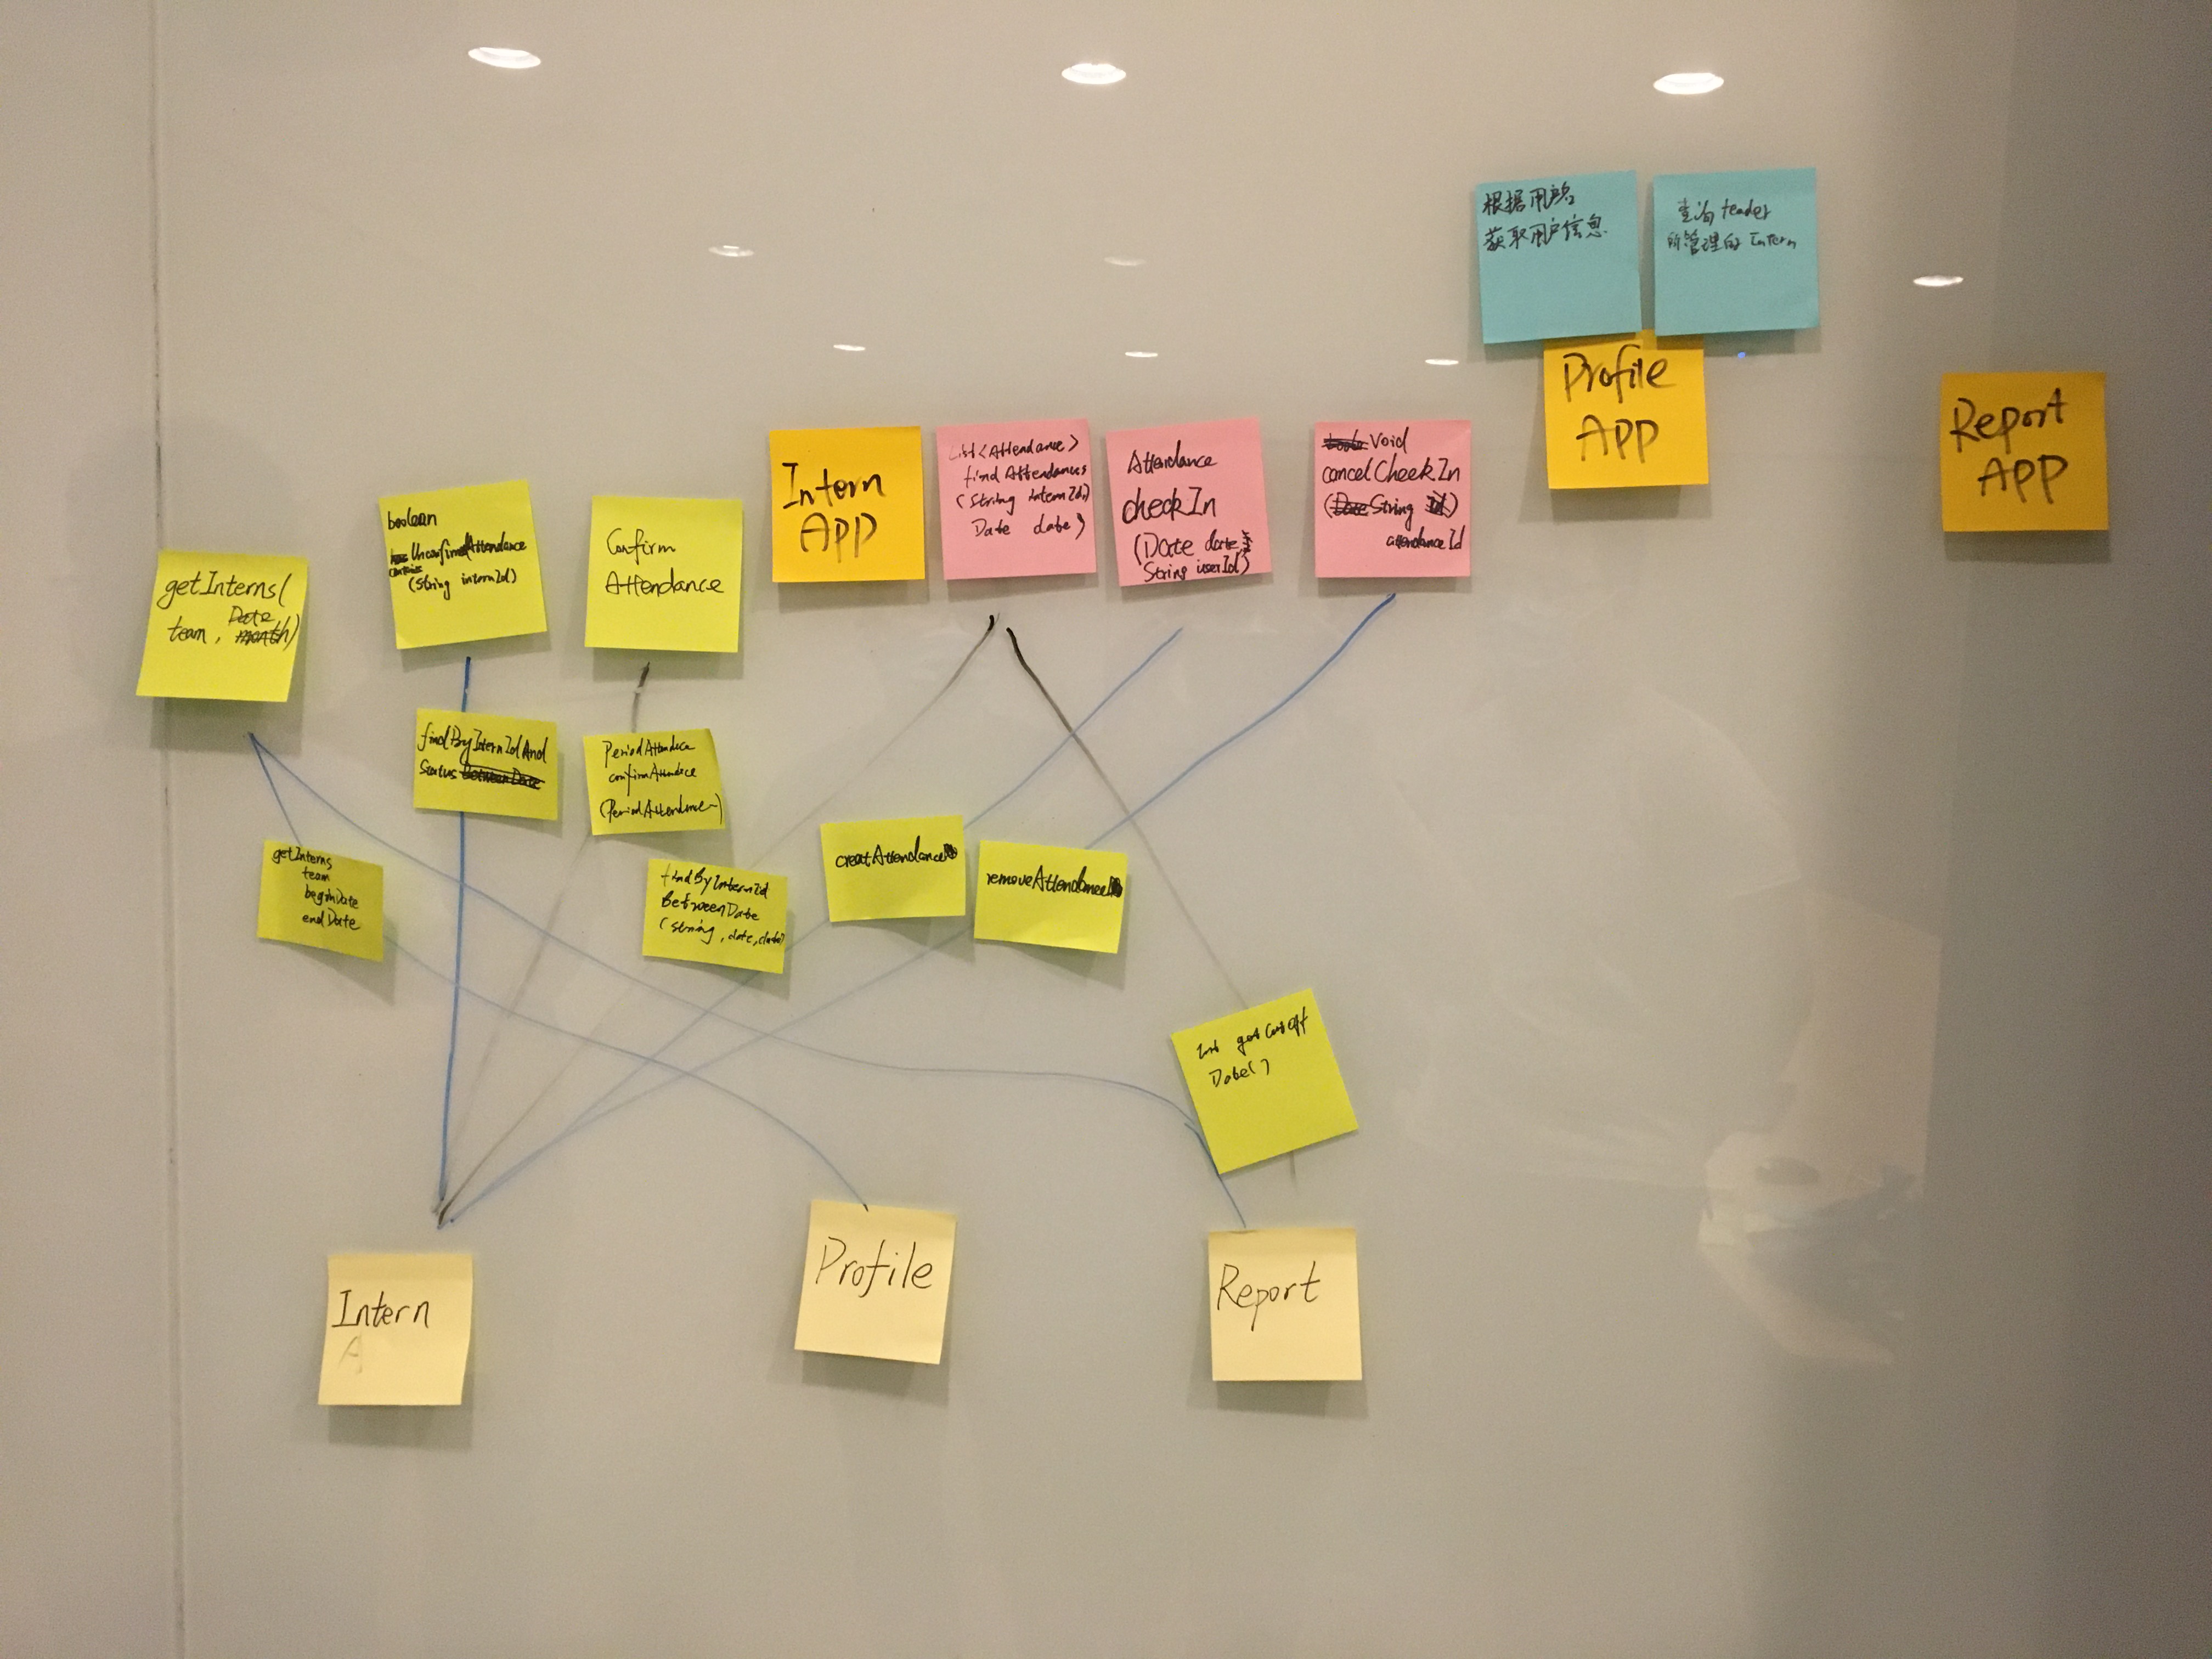 根据用户名
获取用户信息
查询 leader
所管理的 Intern
Profile
APP
Report
APP
Intern
APP
List<Attendance>
findAttendances
(String internId,
Date date)
Attendance
checkIn
(Date date,
String userId)
Void
cancelCheckIn
(String
attendanceId
boolean
Unconfirmed Attendance
contains
(String internId)
Confirm
Attendance
getInterns(
Date
team, month)
findByInternIdAnd
Status Between Date
PeriodAttendace
confirmAttendace
(PeriodAttendance)
getInterns
team
beginDate
endDate
findByInternId
BetweenDate
(string, date, date)
creatAttendance
removeAttendance
Int getCutOff
Date()
Intern
A
Profile
Report